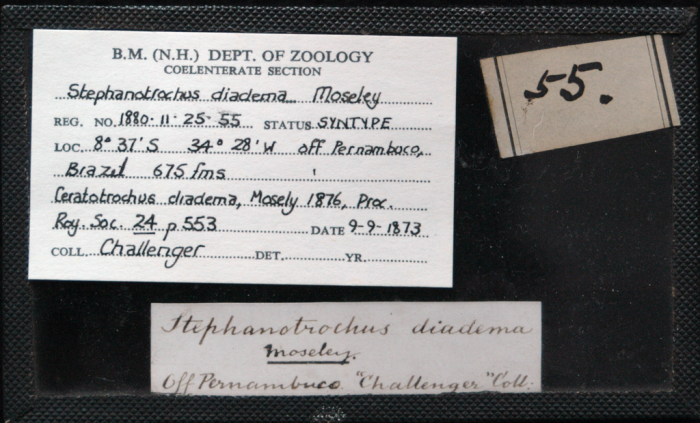 B.M. (N.H.) DEPT. OF ZOOLOGY
COELENTERATE SECTION
Stephanotrochus diadema Moseley
REG. NO. 1880·11·25·55 STATUS SYNTYPE
LOC. 8° 37'S 34° 28'W off Pernambuco,
Brazil 675 fms
Ceratotrochus diadema, Mosely 1876, Proc.
Roy. Soc. 24 p 553 DATE 9-9-1873
COLL. Challenger DET. YR.
55.
Stephanotrochus diadema
Moseley.
Off Pernambuco. "Challenger" Coll: